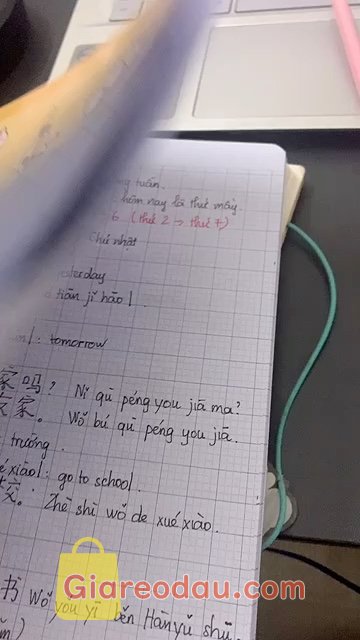 tuần.
hôm nay là thứ mấy.
6 (thứ 2 → thứ 7)
Chủ nhật
yesterday
tiān jǐ hào |
: tomorrow
家吗? Nǐ qù péng you jiā ma?
家。 Wǒ bú qù péng you jiā.
trường.
xiào| : go to school.
Zhè shì wǒ de xué xiào.
书 Wǒ yǒu yī běn Hànyǔ shū.
Giareodau.com